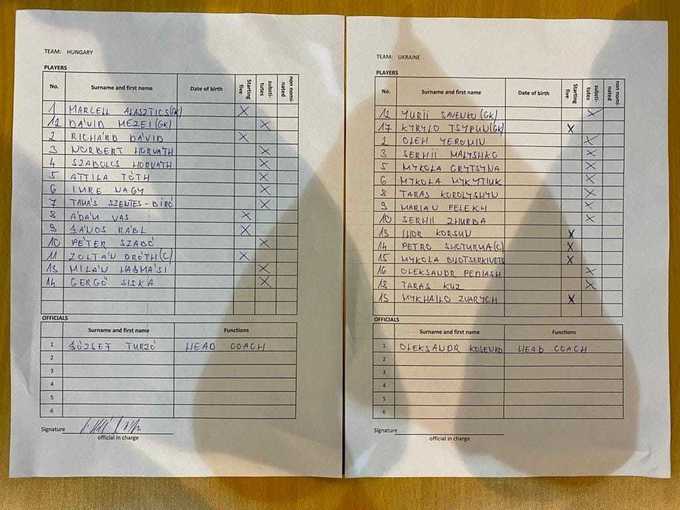 TEAM: HUNGARY
PLAYERS
No. Surname and first name Date of birth Starting five substi-tutes non nomi-nated
1 MARCELL ALASZTICS (GK) X
12 DÁVID MEZEI (GK) X
2 RICHÁRD DÁVID X
3 NORBERT HORVÁTH X
4 SZABOLCS HORVÁTH X
5 ATTILA TÓTH X
6 IMRE NAGY X
7 TAMÁS SZENTES-BÍRÓ X
8 ÁDÁM VAS X
9 JÁNOS RÁBL X
10 PÉTER SZABÓ X
11 ZOLTÁN DRÓTH (C) X
13 MILÁN HAGMÁSI X
14 GERGŐ SISKA X
OFFICIALS
Surname and first name Functions
1 JÓZSEF TURZÓ HEAD COACH
2
3
4
5
6
Signature
official in charge
TEAM: UKRAINE
PLAYERS
No. Surname and first name Date of birth Starting five substi-tutes non nomi-nated
12 YURII SAVENKO (GK) X
17 KYRYLO TSYPUN (GK) X
2 OLEH YEROMIN X
3 SERHII MALYSHKO X
5 MYKOLA GRYTSYNA X
6 MYKOLA MYKYTIUK X
8 TARAS KOROLYSHYN X
9 MARIAN PELEKH X
10 SERHII ZHURBA X
13 IHOR KORSUN X
14 PETRO SHOTURMA (C) X
15 MYKOLA X
16 OLEKSANDR PEDIASH X
18 TARAS KUZ X
MYKHAILO ZVARYCH X
OFFICIALS
Surname and first name Functions
1 OLEKSANDR KOSENKO HEAD COACH
2
3
4
5
6
Signature
official in charge